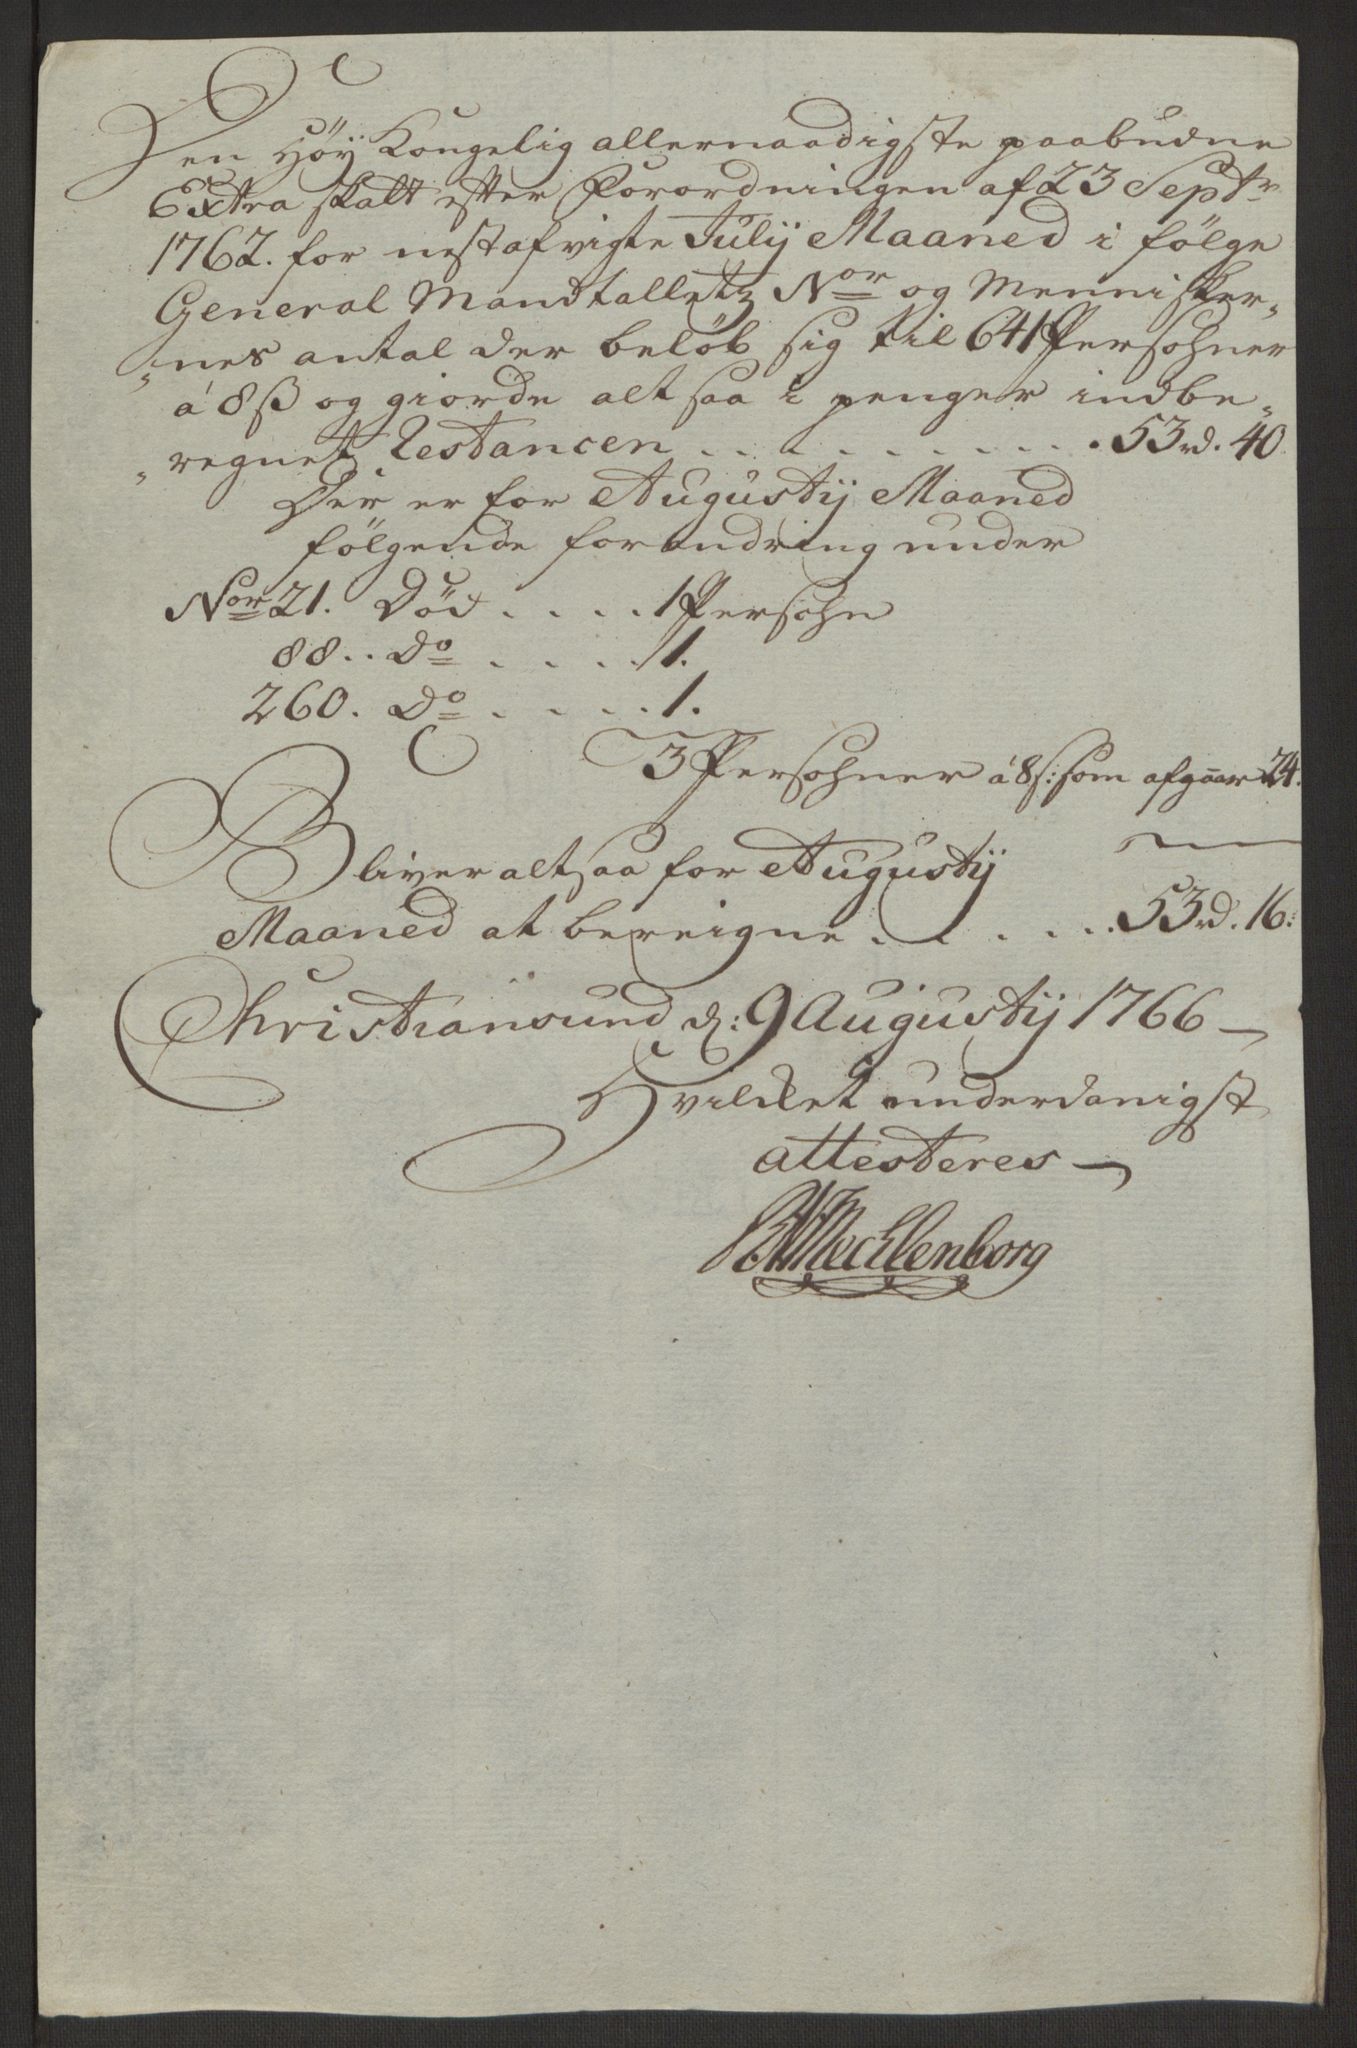 Den Höÿ Kongelig allernaadigste paabudne
Extra skatt efter Forordningen af 23 Septr
1762. for nestafvigte Julij Maaned i følge
General Mandtalletz Nor og Mennisker„
„nes antal der beløb sig til 641 Persohner
á 8 ß og giorde alt saa i penger indbe„
„regnet Restancen . . . . . . . . . 53 rd. 40
Der er for Augustij Maaned
følgende forandring under
Nor 21. Død . . . . 1 Persohn
88 . . do . . . . 1.
260. do . . . . 1.
3 Persohner á 8 s: som afgaar 24.
Bliver altsaa for Augustij
Maaned at bereigne . . . . . . 53 rd. 16:
Christiansund d: 9 Augustij 1766
Hvilcket underdanigst
attesteres
Mechlenborg